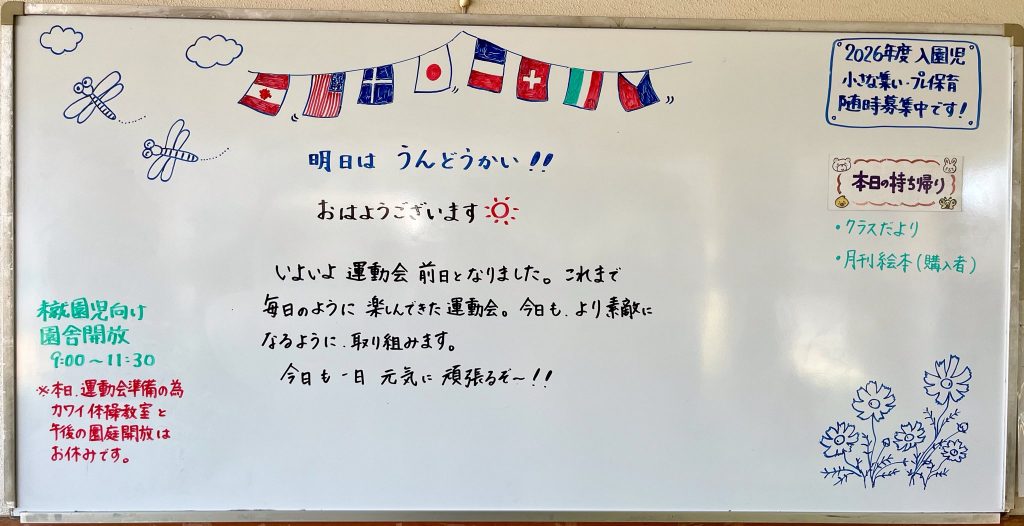 2026年度 入園児
小さな集い・プレ保育
随時募集中です！
明日は うんどうかい!!
おはようございます
いよいよ 運動会 前日となりました。これまで
毎日のように 楽しんできた 運動会。今日も、より素敵に
なるように、取り組みます。
今日も一日 元気に 頑張るぞ〜!!
本日の持ち帰り
・クラスだより
・月刊絵本(購入者)
未就園児向け
園舎開放
9:00〜11:30
※本日、運動会準備の為
カワイ体操教室と
午後の園庭開放は
お休みです。